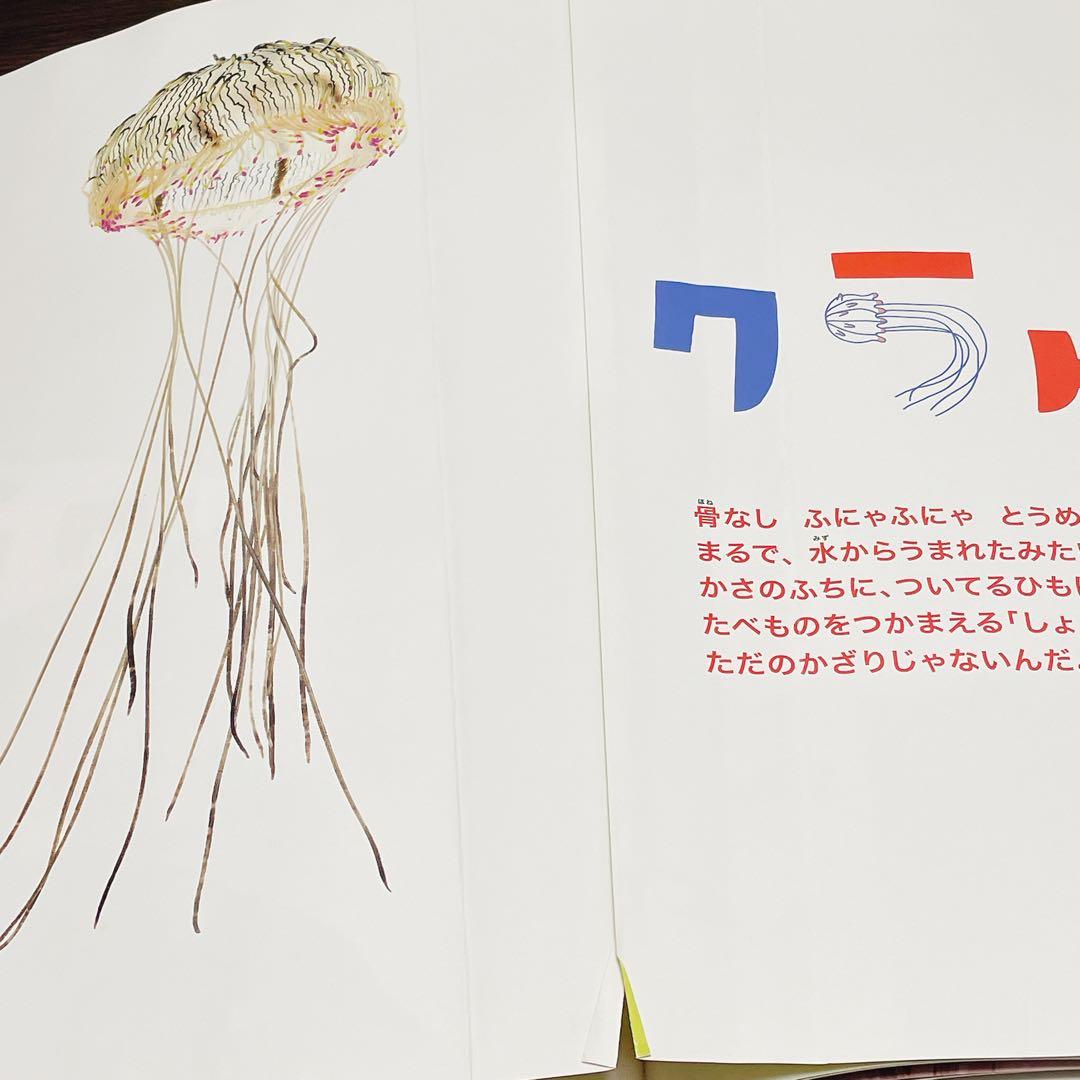 クラ
骨なし ふにゃふにゃ とうめ
まるで、水からうまれたみた
かさのふちに、ついてるひも
たべものをつかまえる「しょ
ただのかざりじゃないんだ